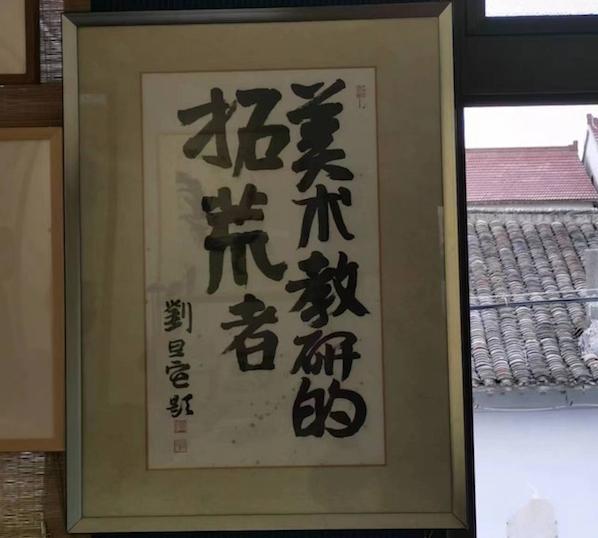 美术教研的
拓荒者
劉旦宅题